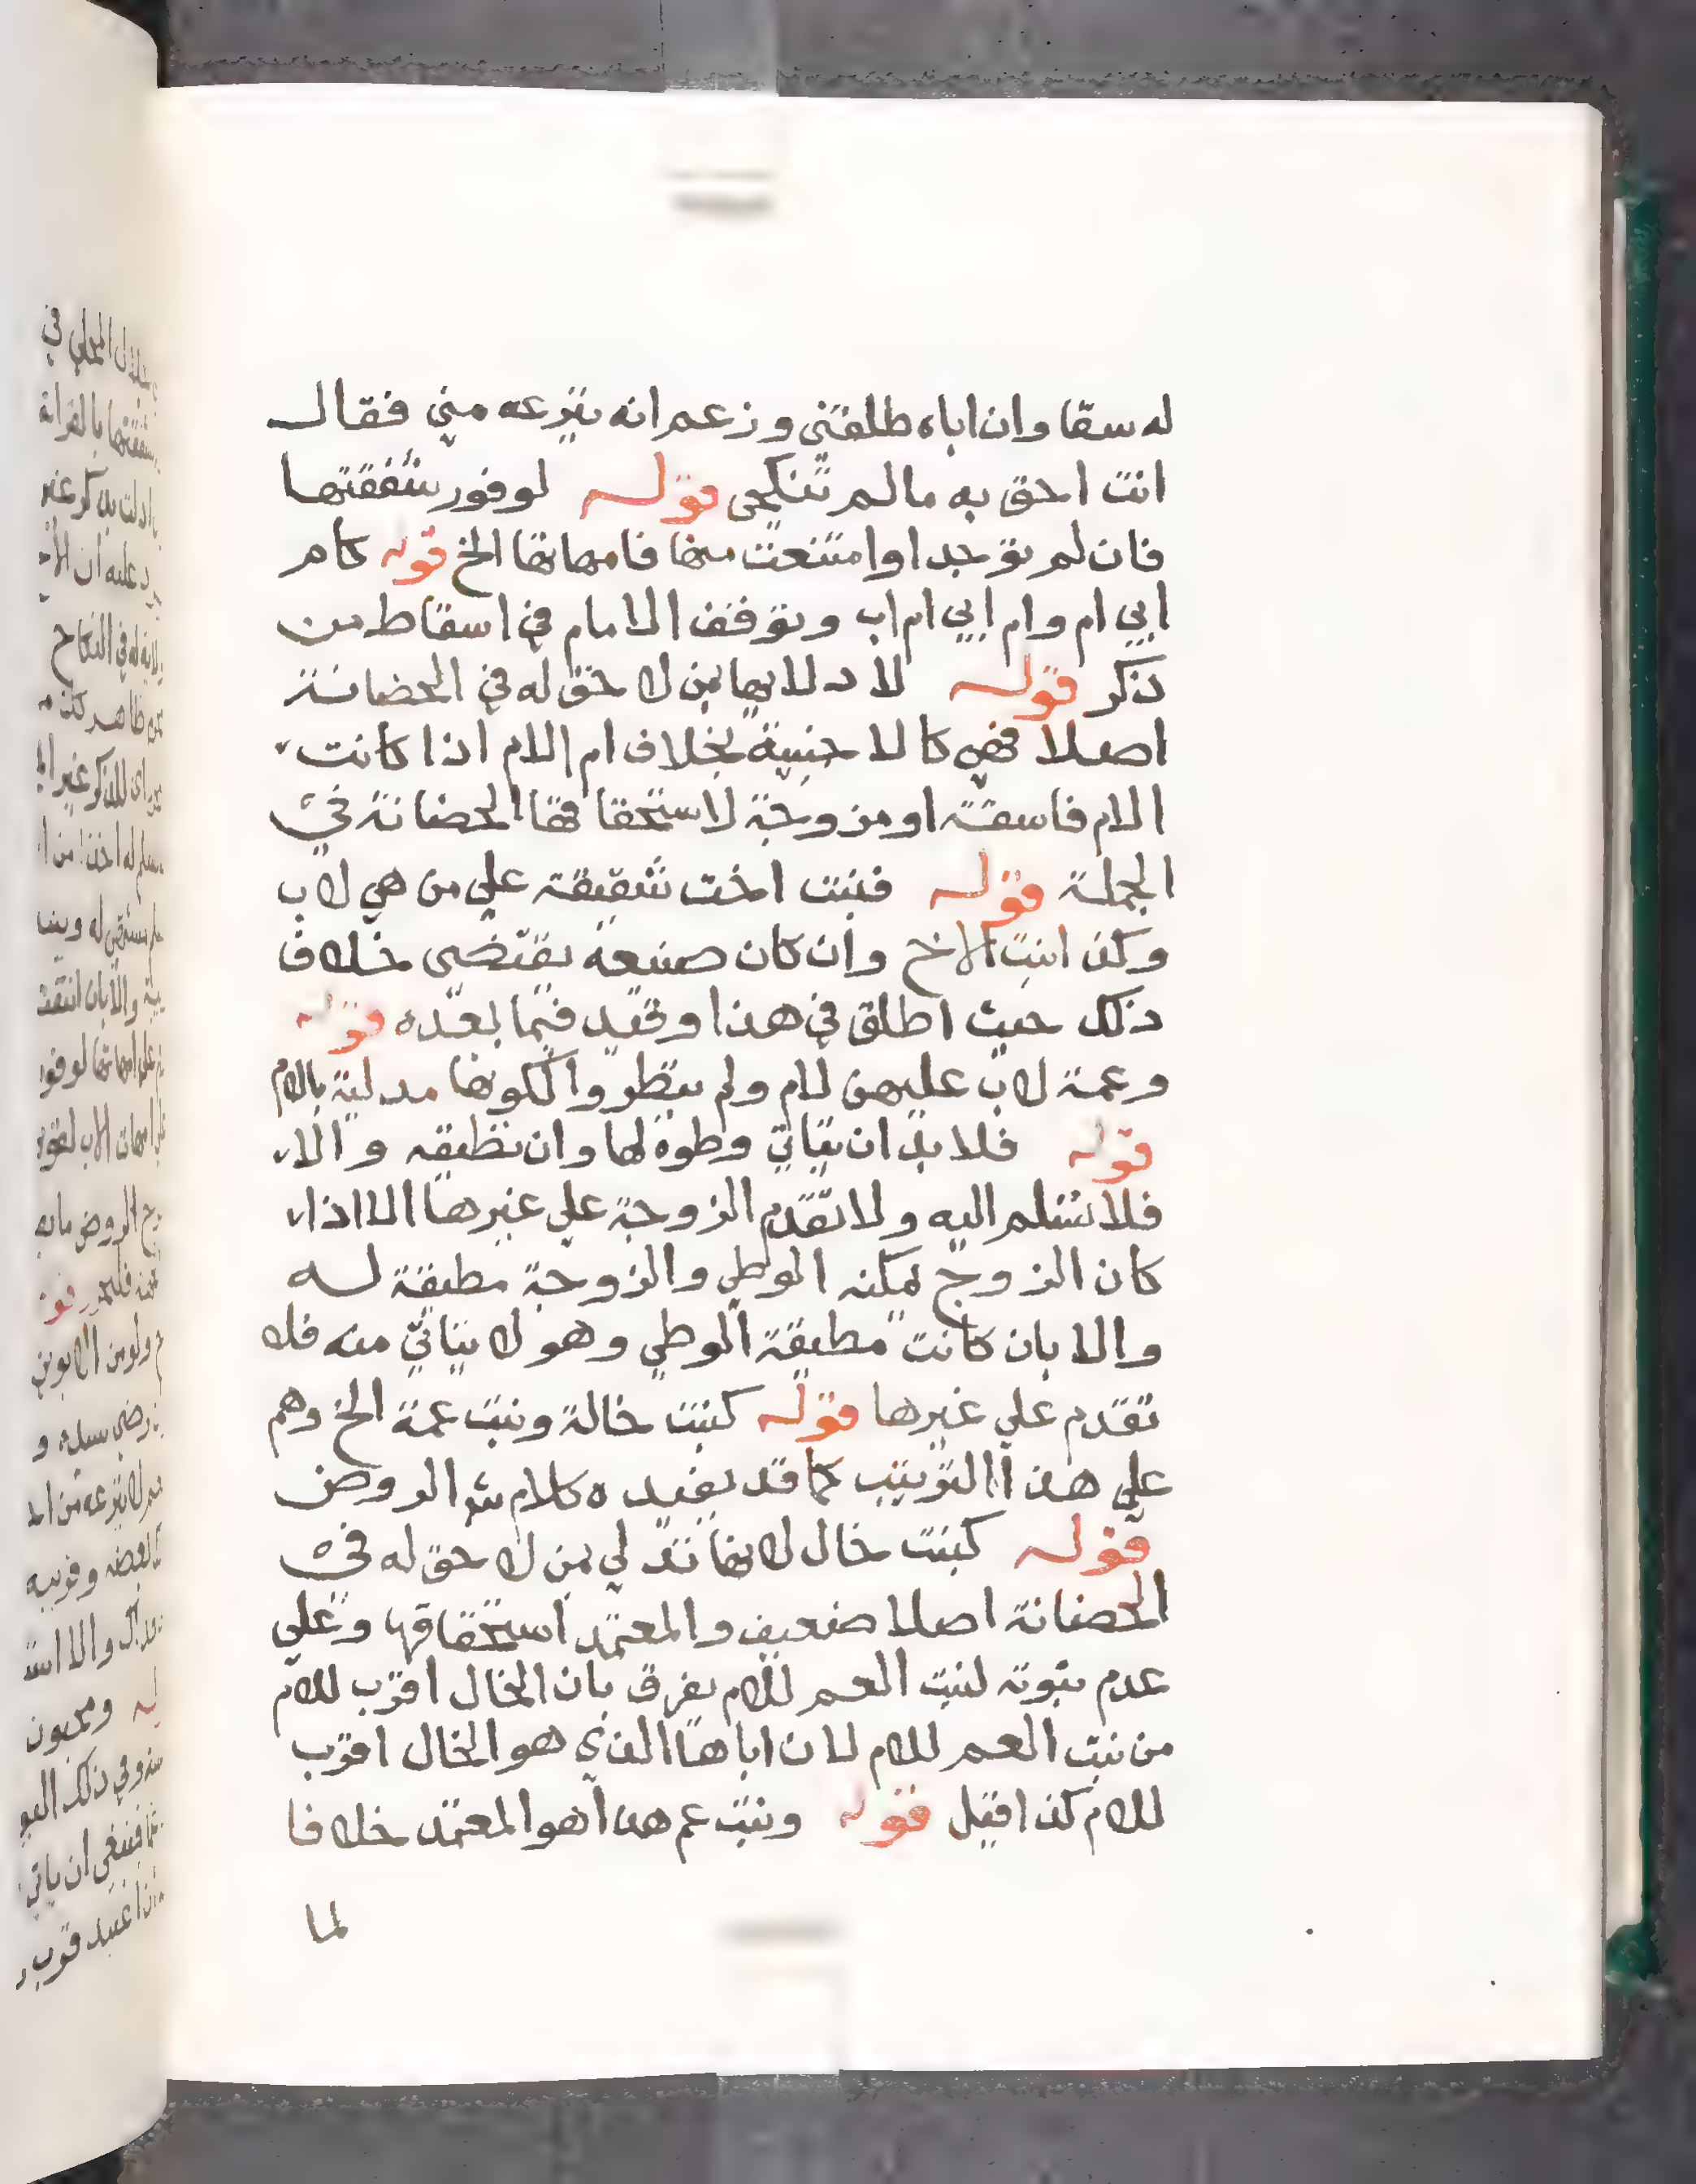 له سقا وان اباه طلقني وزعم انه ينزعه مني فقال
انت احق به مالم تنكحى قوله لوفور شفقتها
فان لم توجد او امتنعت منها فامهاتها الخ قوله كام
ابي ام وام ابي ام اب وتوقف الامام في اسقاط من
ذكر قوله لادلائها بمن لا حق له في الحضانة
اصلا فهي كالاجنبية بخلاف ام الام اذا كانت
الام فاسقة او مزوجة لاستحقاقها الحضانة في
الجملة قوله فبنت اخت شقيقة علي من هي لاب
وكذا بنت الاخ وان كان صنيعه يقتضى خلاف
ذلك حيث اطلق في هذا وقيد فيما بعده قوله
وعمة لاب عليهن لام ولم ينظروا لكونها مدلية بالام
قوله فلا بد ان يتاتي وطوه لها وان تطيقه والا
فلا تسلم اليه ولا تقدم الزوجة علي غيرها الا اذا
كان الزوج يمكنه الوطي والزوجة مطيقة له
والا بان كانت مطيقة الوطي وهو لا يتاتي منه فلا
تقدم علي غيرها قوله كبنت خالة وبنت عمة الخ وهم
علي هذا الترتيب كما قد يفيده كلام شر الروض
قوله كبنت خال لانها تدلي بمن لا حق له في
الحضانة اصلا ضعيف والمعتمد استحقاقها وعلي
عدم ثبوته لبنت العم للام يفرق بان الخال اقرب للام
من بنت العم للام لان اباها الذي هو الخال اقرب
للام كذا قيل قوله وبنت عم هذا هو المعتمد خلافا
لما